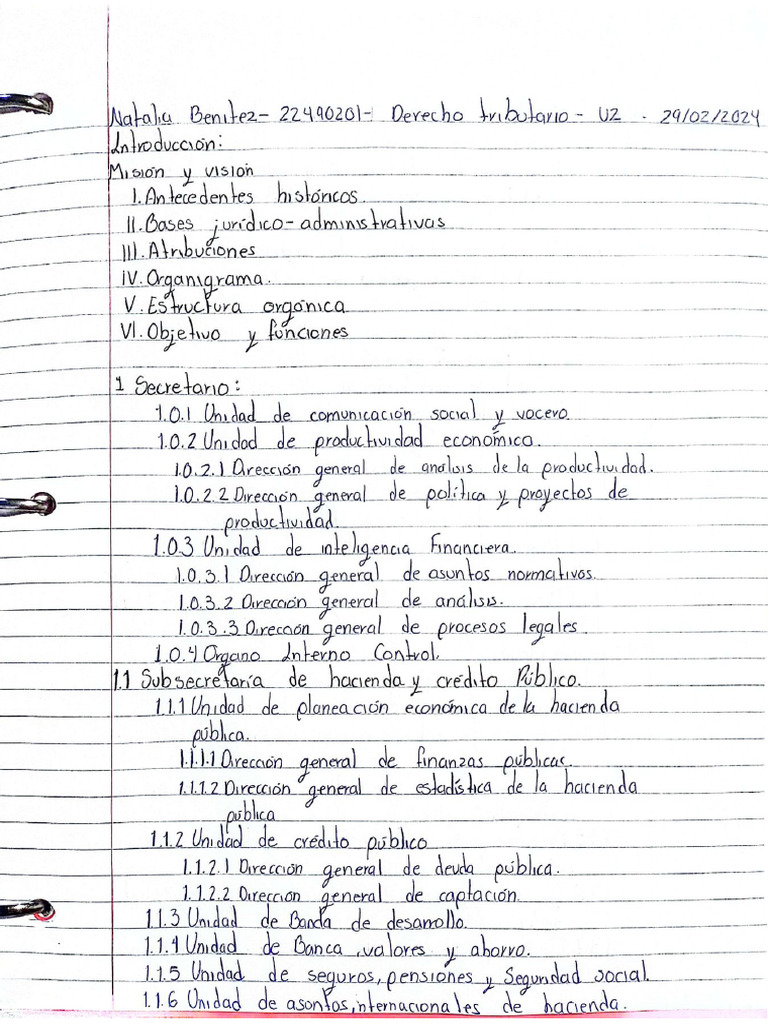 Natalia Benitez- 22490201- Derecho tributario - U2 - 29/02/2024
Introducción:
Misión y visión
I. Antecedentes históricos.
II. Bases jurídico-administrativas
III. Atribuciones
IV. Organigrama.
V. Estructura orgánica
VI. Objetivo y funciones
1 Secretario:
1.0.1 Unidad de comunicación social y vocero.
1.0.2 Unidad de productividad económica.
1.0.2.1 Dirección general de análisis de la productividad.
1.0.2.2 Dirección general de política y proyectos de
productividad.
1.0.3 Unidad de inteligencia Financiera.
1.0.3.1 Dirección general de asuntos normativos.
1.0.3.2 Dirección general de análisis.
1.0.3.3 Dirección general de procesos legales
1.0.4 Organo Interno Control.
1.1 Subsecretaría de hacienda y crédito Público.
1.1.1 Unidad de planeación económica de la hacienda
pública.
1.1.1.1 Dirección general de finanzas públicas.
1.1.1.2 Dirección general de estadística de la hacienda
pública
1.1.2 Unidad de crédito público
1.1.2.1 Dirección general de deuda pública.
1.1.2.2 Dirección general de captación.
1.1.3 Unidad de Banda de desarrollo.
1.1.4 Unidad de Banca, valores y ahorro.
1.1.5 Unidad de seguros, pensiones y Seguridad social.
1.1.6 Unidad de asontos, internacionales de hacienda.